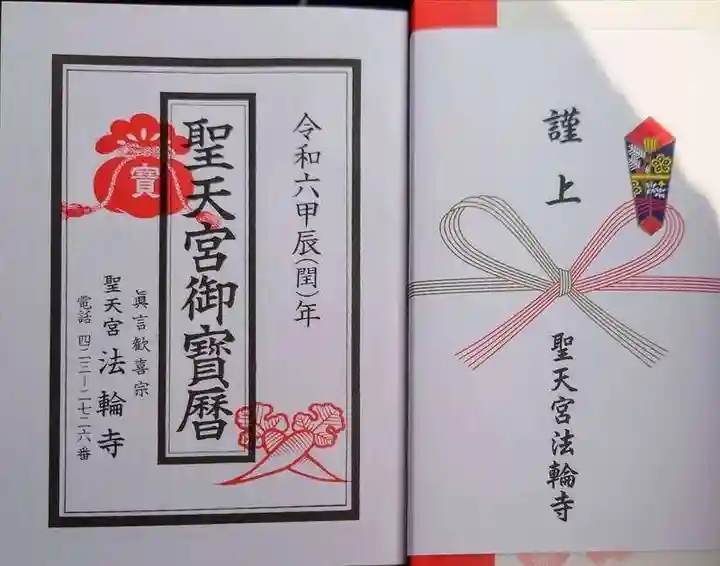 令和六甲辰(閏)年
聖天宮御寳暦
寳
眞言歓喜宗
聖天宮法輪寺
電話 四二三ー二七二六番
謹上
聖天宮法輪寺